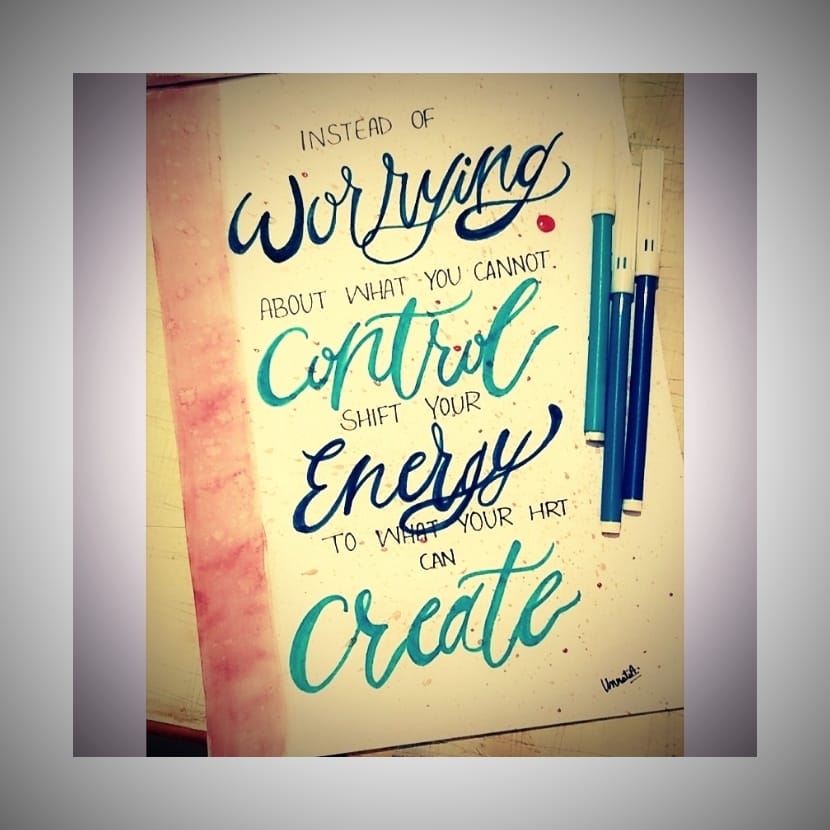 INSTEAD OF
Worrying
ABOUT WHAT YOU CANNOT
Control
SHIFT YOUR
Energy
TO WHAT YOUR HRT
CAN
Create